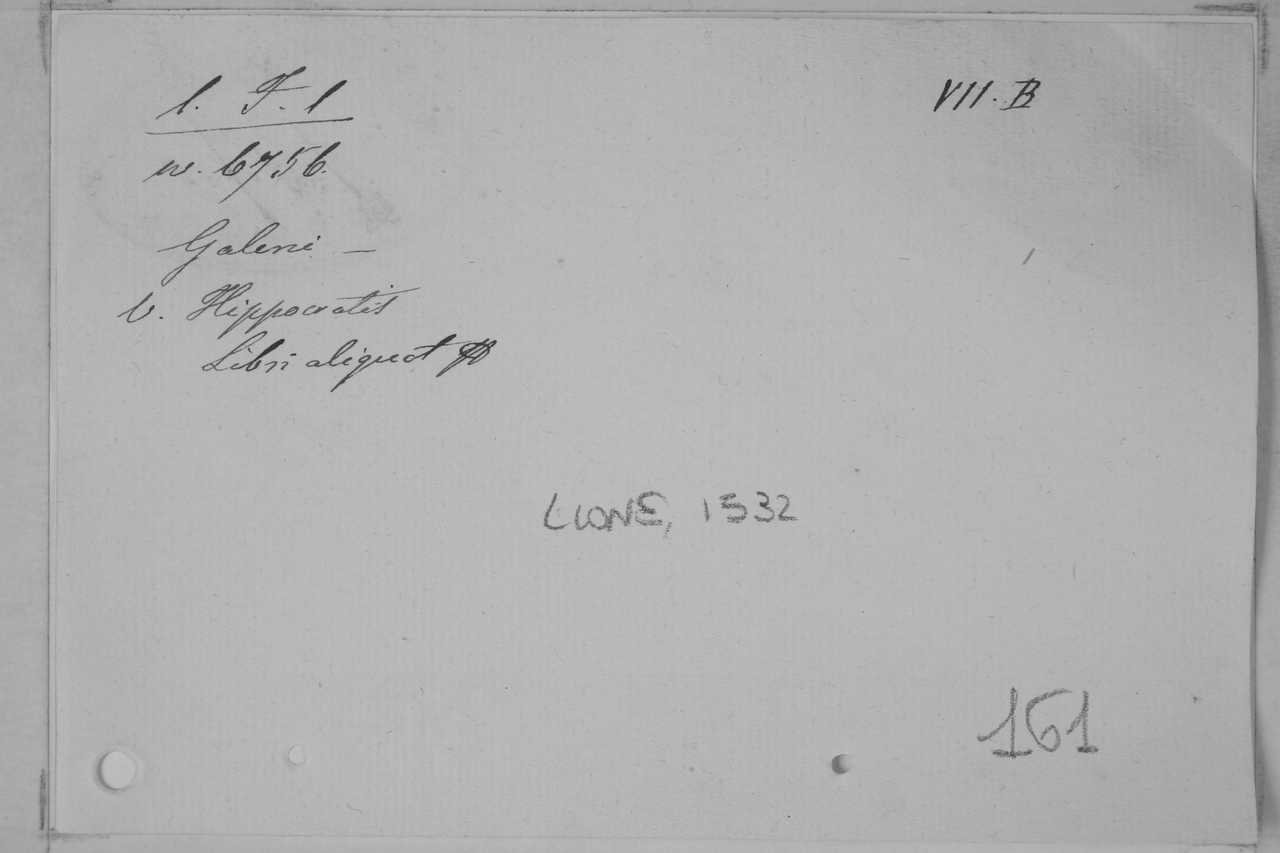 l. F. l
VII. B
n. 6756.
Galeni —
V. Hippocratis
Libri aliquot
LIONE, 1532
161